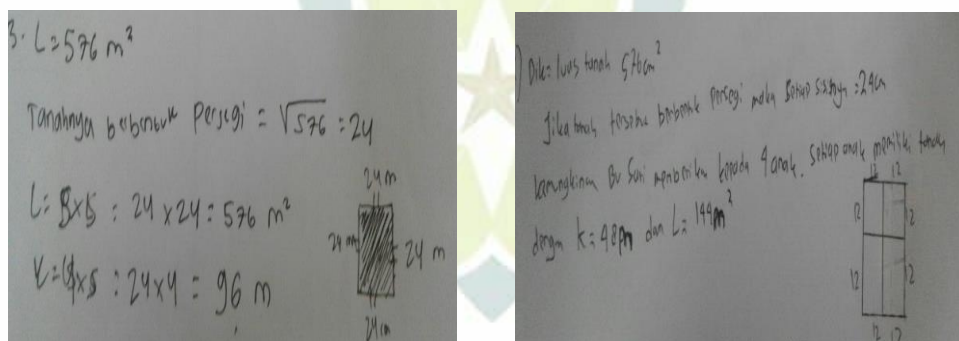 3. L = 576 m²
Tanahnya berbentuk persegi = √576 = 24
L = s x s : 24 x 24 = 576 m²
K = 4 x s : 24 x 4 = 96 m
24 m
24 m
24 m
24 cm
) Dik = luas tanah 576 cm²
Jika tanah tersebut berbentuk persegi maka setiap sisinya = 24 cm
kemungkinan Bu Sari memberikan kepada 4 anak. setiap anak memiliki tanah
dengan k = 48 m dan L = 144 m²
12 12
12 12
12 12
12 12